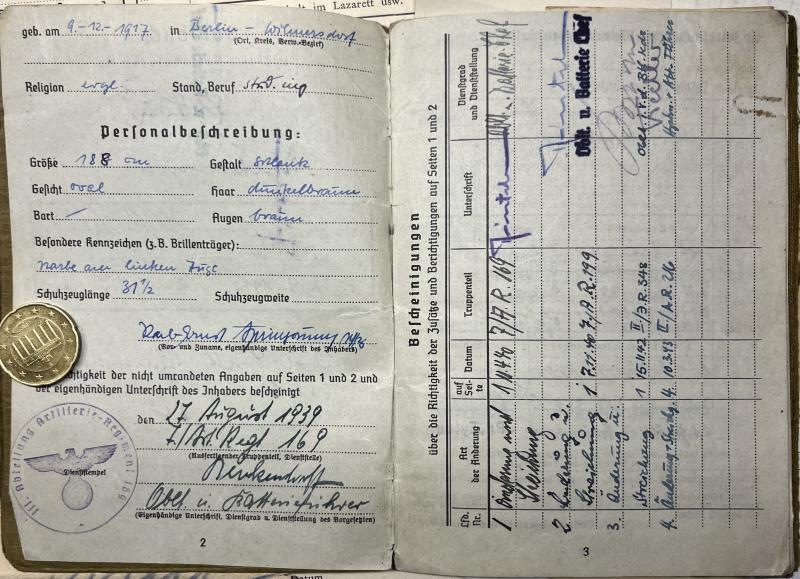 im Lazarett usw.
geb. am 9.-12.-1917 in Berlin-Wilmersdorf
(Ort, Kreis, Verw.-Bezirk)
Religion evgl. Stand, Beruf stud. ing
Personalbeschreibung:
Größe 188 cm Gestalt schlank
Gesicht oval Haar dunkelbraun
Bart — Augen braun
Besondere Kennzeichen (z.B. Brillenträger):
Narbe am linken Auge
Schuhzeuglänge 31½ Schuhzeugweite
(Vor- und Zuname, eigenhändige Unterschrift des Inhabers)
Richtigkeit der nicht umrandeten Angaben auf Seiten 1 und 2 und
der eigenhändigen Unterschrift des Inhabers bescheinigt
den 27. August 1939
7./Art. Regt 169
(Ausfertigender Truppenteil, Dienststelle)
III. Abteilung Artillerie-Regiment 169
Dienststempel
Oblt. u. Batterieführer
(Eigenhändige Unterschrift, Dienstgrad u. Dienststellung des Vorgesetzten)
2
Bescheinigungen
über die Richtigkeit der Zusätze und Berichtigungen auf Seiten 1 und 2
Lfd. Nr. Art der Änderung auf Seite Datum Truppenteil Unterschrift Dienstgrad und Dienststellung
1 Streichung 1 7/A.R. 169
2. Änderung u. Streichung 1 7.11.40 7/A.R. 199 Oblt. u. Batterie Chef
3. Änderung u. Streichung 1 15.11.42 II/J.R. 348
4. 4. 10.3.43 II/A.R. 216
3
Datum